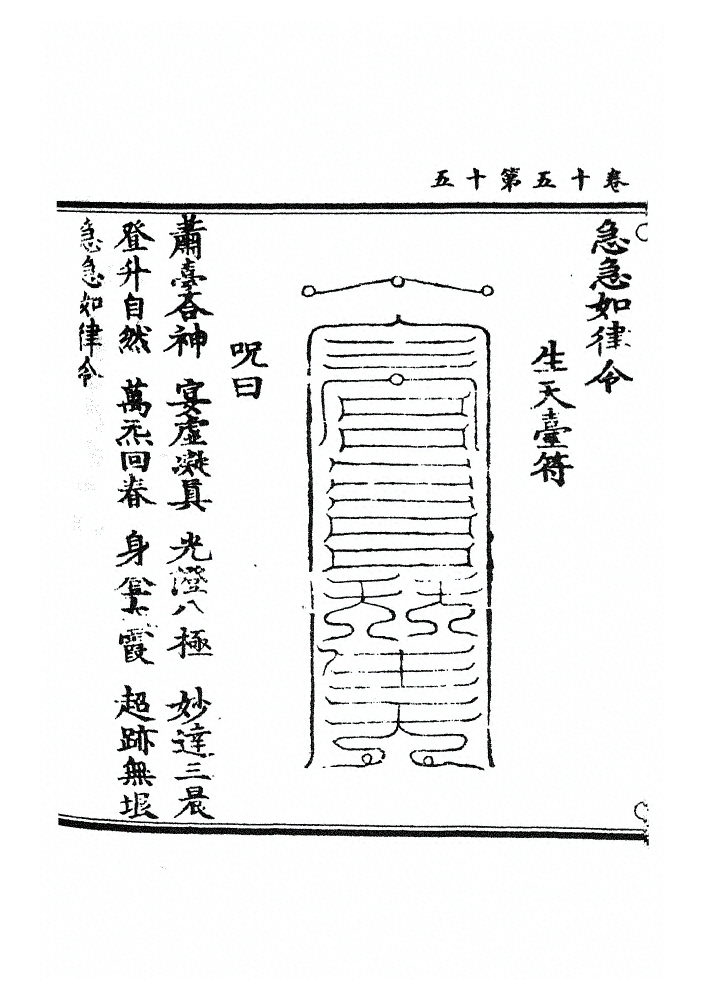 卷十五第十五
急急如律令
生天臺符
呪曰
蕭臺合神 宴虛凝真 光澄八極 妙達三晨
登升自然 萬炁回春 身 霞 超跡無垠
急急如律令